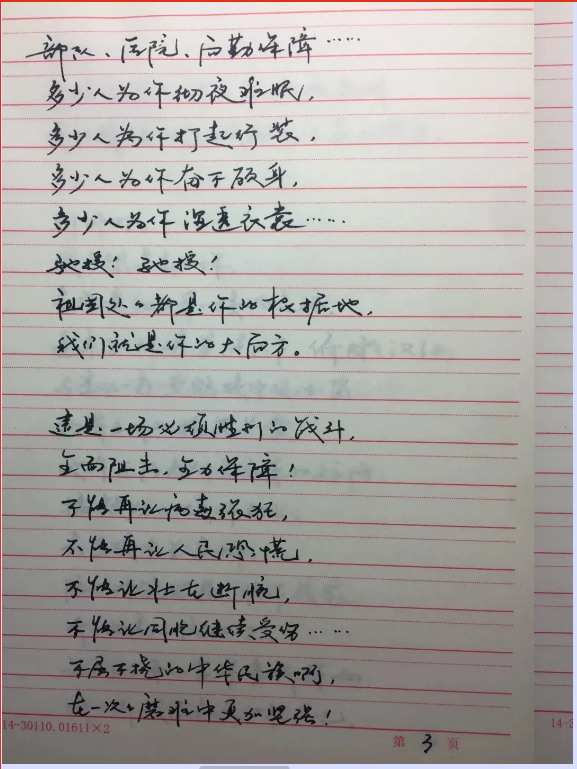 部队、医院、后勤保障……
多少人为你彻夜难眠，
多少人为你打起行装，
多少人为你奋不顾身，
多少人为你湿透衣裳……
驰援！驰援！
祖国处处都是你的根据地，
我们就是你的大后方。
这是一场必须胜利的战斗，
全面阻击，全力保障！
不能再让病毒张狂，
不能再让人民恐慌，
不能让壮士断腕，
不能让同胞继续受伤……
不屈不挠的中华民族啊，
在一次次磨难中更加坚强！
14-30110.01611×2
第 3 页
14-3